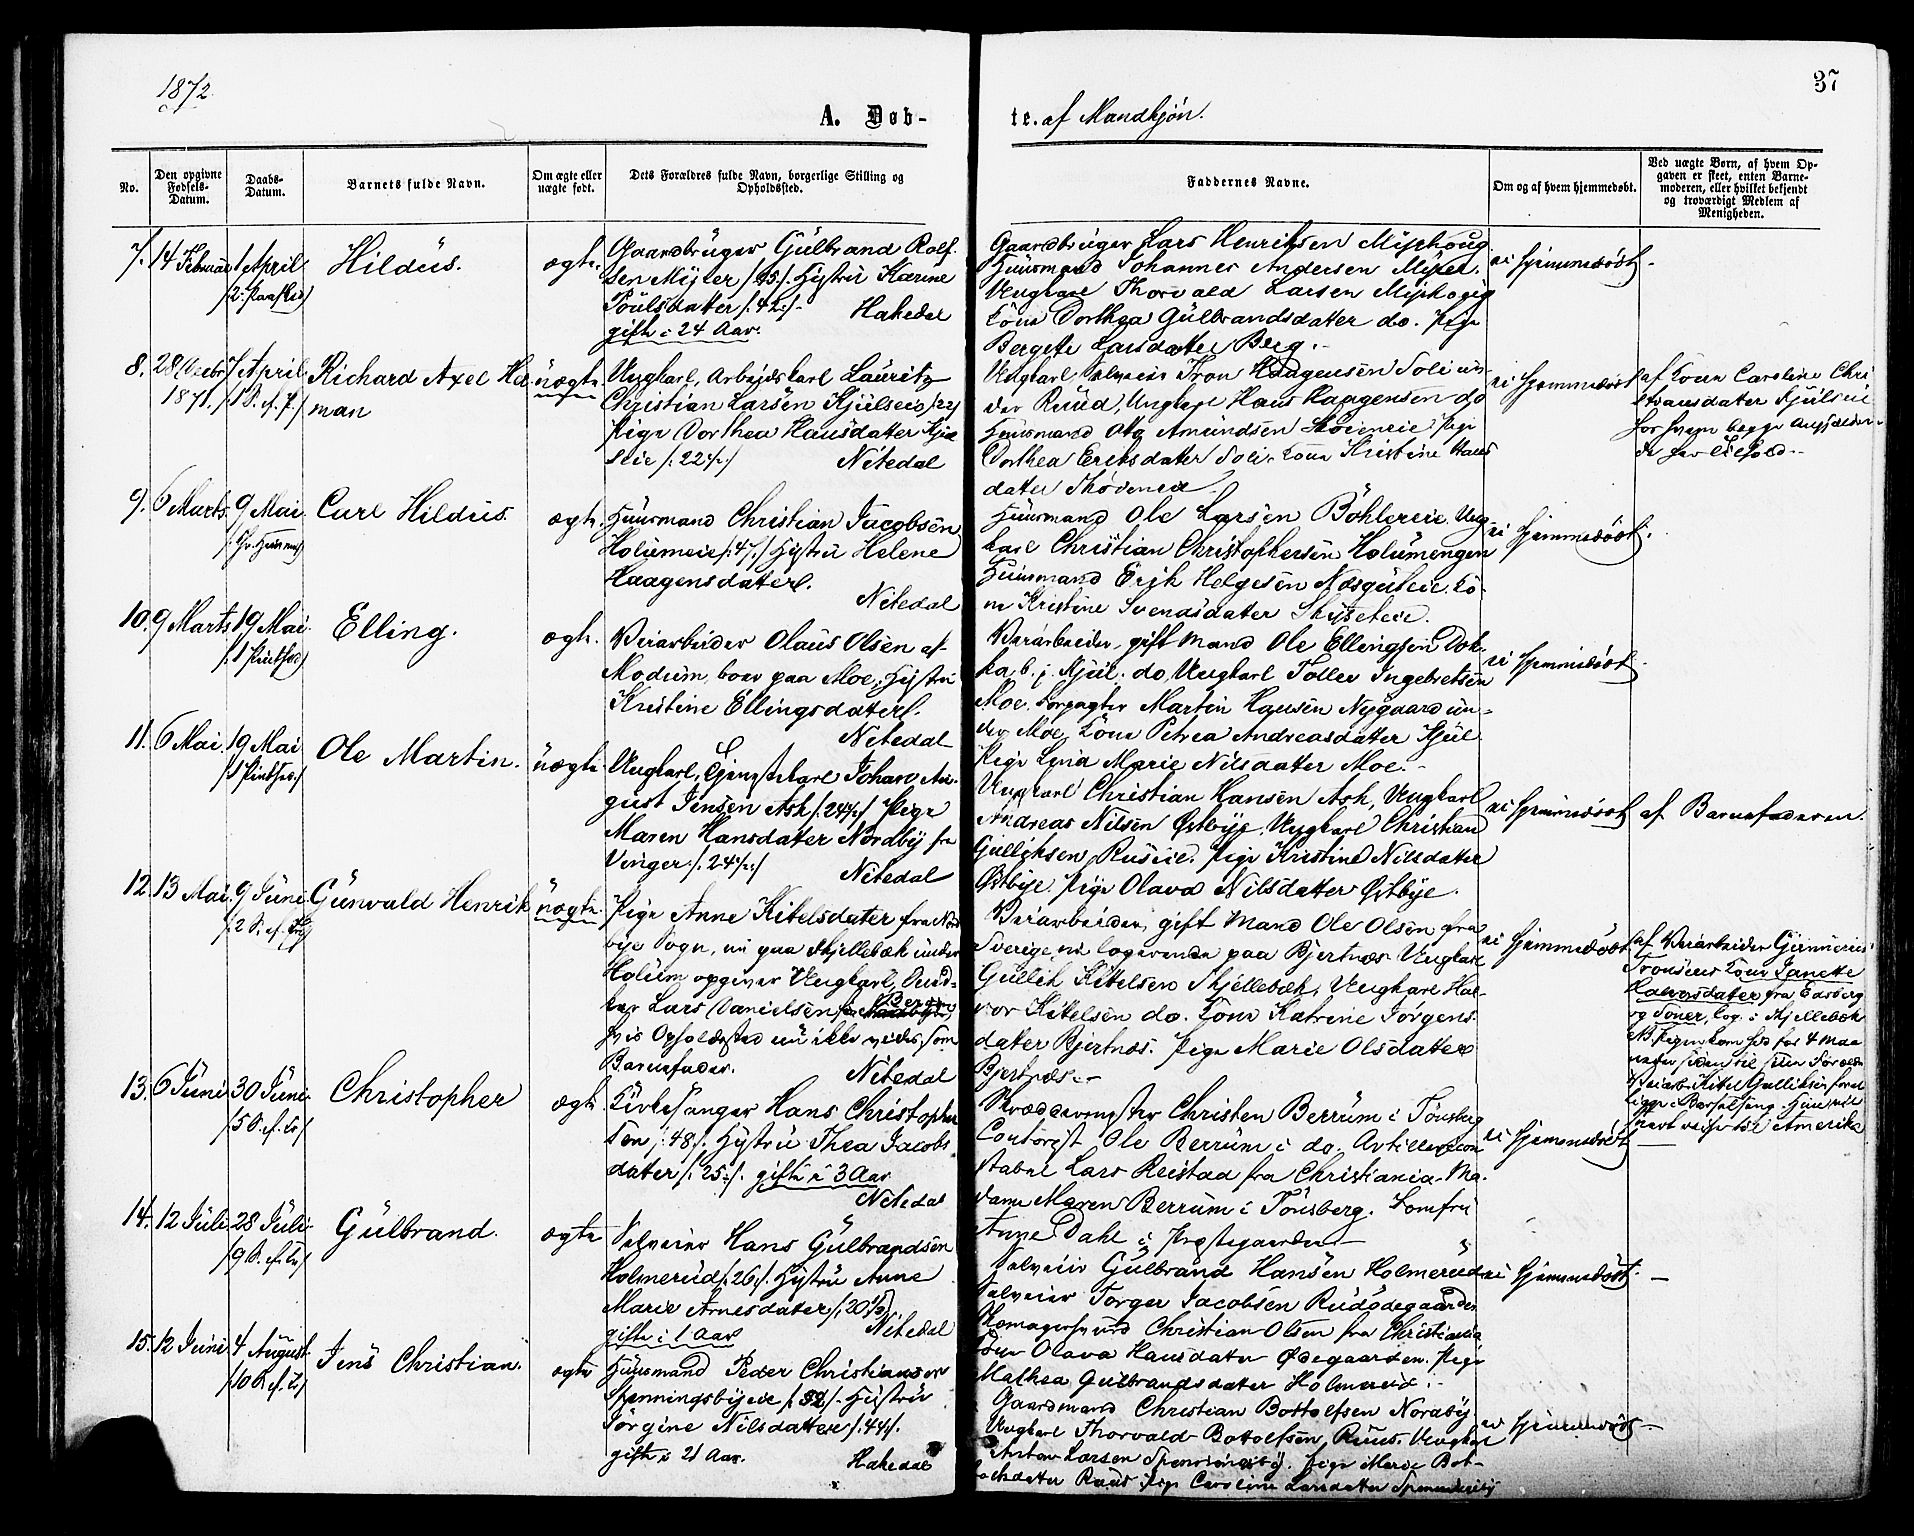 1872.
37
A. Døb-
te. af Mandkjøn.
No.
Den opgivne
Fødsels-
Datum.
Daabs-
Datum.
Barnets fulde Navn.
Om ægte eller
uægte født.
Dets Forældres fulde Navn, borgerlige Stilling og
Opholdssted.
Faddernes Navne.
Om og af hvem hjemmedøbt.
Ved uægte Børn, af hvem Op-
gaven er skeet, enten Barne-
moderen, eller hvilket bekjendt
og troværdigt Medlem af
Menigheden.
7. 14 Februar 1 April
/2: Paasked/
Hildus.
ægte.
Gaardbruger Gulbrand Rolf-
sen Myrer /:45:/. Hustru Karine
Poulsdatter /:42:/.
Hakedal
gifte i 24 Aar.
Gaardbruger Lars Henriksen
Huusmand Johannes Andersen
Ungkarl Thorvald Larsen
Kone Dorthea Gulbrandsdatter do. Pige
Bergete Larsdatter Berg.
ei hjemmedøbt.
8. 28 Decbr 7 April
1871. /1 S. ef. P./
Richard Axel Her-
man
uægte
Ungkarl, Arbeidskarl Lauritz
Christian Larsen Kjulseie /:22/
Pige Dorthea Hansdatter
/:22½:/
Nitedal
Ungkarl, Selveier Iron Haagensen Soli un-
der Ruud, Ungkarl Hans Haagensen do
Huusmand Ole Amundsen Pige
Dorthea Eriksdatter Soli. Kone Kristine Hans-
datter
ei hjemmedøbt
af Kone Caroline Chri-
stiansdatter Kjulseie
for hvem begge Angjælden-
de har tilstaaet.
9. 6 Marts. 9 Mai.
/: Chr. Himmelf/
Carl Hildus.
ægte.
Huusmand Christian Jacobsen
Holumeie /:47:/ Hustru Helene
Haagensdatter.
Nitedal
Huusmand Ole Larsen Böhlereie. Ung-
karl Christian Christophersen Holumengen
Huusmand Erik Helgesen Næsguteie. Ko-
ne Kristine Svendsdatter
ei hjemmedøbt.
10. 9 Marts 19 Mai.
/:1 Pintsed/
Elling.
ægte.
Veiarbeider Olaus Olsen af
Modum, boer paa Moe. Hustru
Kristine Ellingsdatter.
Nitedal
Veiarbeider, gift Mand Ole Ellingsen Dok-
ka, b. p. Kjul. do. Ungkarl Tollev Ingebretsen
Moe. Forpagter Martin Hansen Nygaard un-
der Moe, Kone Petrea Andreasdatter Kjul
Pige Lina Marie Nilsdatter Moe.
ei hjemmedøbt.
11. 6 Mai. 19 Mai
/1 Pintsed/
Ole Martin.
uægte.
Ungkarl, Tjenestekarl Johan Au-
gust Jensen Ask /:24½/ Pige
Maren Hansdatter Nordby fra
Vinger /:24½:/
Nitedal
Ungkarl Christian Hansen Ask, Ungkarl
Andreas Nilsen Østbye, Ungkarl Christian
Gulliksen Ruseie. Pige Kristine Nilsdatter
Østbye. Pige Olava Nilsdatter Østbye.
ei hjemmedøbt
af Barnefaderen.
12. 13 Mai. 9 Juni
/:2 S. ef.
Gunvald Henrik
uægte
Pige Anne Kitelsdatter fra
Sogn, nu paa Skjellebæk under
Holum opgiver Ungkarl,
Lars Danielsen fra Berg
hvis Opholdssted nu ikke vides, som
Barnefader.
Nitedal
Veiarbeider, gift Mand Ole Olsen fra
Sverige, nu logerende paa Bjertnæs. Ungkarl
Gullik Kitelsen Skjellebæk, Ungkarl Hal-
vor Kitelsen do. Kone Katrine Jørgens-
datter Bjertnæs. Pige Marie Olsdatter
Bjertnæs.
ei hjemmedøbt.
af Veiarbeider
Kone Janette
Halvorsdatter fra Eidsberg
og log. i Skjellebæk
NB. Pigen kom hid for 4 Maa-
neder siden til sine Forældre
Veiarb. Kitel Gulliksen
Hun vil
snart reise til Amerika
13. 6 Juni 30 Juni.
/5 S. ef. Tr/
Christopher
ægte.
Kirkesanger Hans Christopher-
sen /:48:/. Hustru Thea Jacobs-
datter /:25:/. gifte i 3 Aar
Nitedal
Christen Berrum i Tønsberg
Contorist Ole Berrum i do. Artillericon-
stabel Lars Reistad fra Christiania. Ma-
dame Maren Berrum i Tønsberg. Jomfru
Anne Dahl i Præstegaarden.
ei hjemmedøbt
14. 12 Juli 28 Juli
/9 S. ef. Tr/
Gulbrand.
ægte
Selveier Hans Gulbrandsen
Holmerud /:26:/. Hustru Anne
Marie Arnesdatter /:20½/
gifte i 1 Aar
Nitedal
Selveier Gulbrand Hansen Holmerud
Selveier Torger Jacobsen Rudødegaarden
Skomagersvend Christian Olsen fra Christiania
Kone Olava Hansdatter Ødegaarden. Pige
Mathea Gulbrandsdatter Holmerud.
ei hjemmedøbt.
15. 12 Juni 4 August
/10 S. ef. Tr/
Jens Christian.
ægte
Huusmand Peder Christiansen
Spenningsbyeie /:52/. Hustru
Jørgine Nilsdatter /:44:/.
gifte i 21 Aar.
Hakedal
Gaardmand Christian Bottolfsen Nordby.
Ungkarl Thorvald Bottolfsen Ruus. Ungkarl
Anton Larsen Spenningsby. Pige Marie Bot-
tolfsdatter Ruus. Pige Caroline Larsdatter Spenningsby
ei hjemmedøbt.